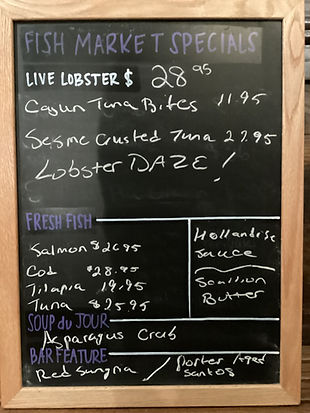 FISH MARKET SPECIALS
LIVE LOBSTER $ 28 95
Cajun Tuna Bites 11.95
Sesme Crusted Tuna 27.95
Lobster DAZE!
FRESH FISH
Salmon $26.95
Cod $28.95
Tilapia 19.95
Tuna $25.95
Hollandise
Sauce
Scallion
Butter
SOUP du JOUR
Asparagus Crab
BAR FEATURE
Red Sangria / Porter Aged
Santos